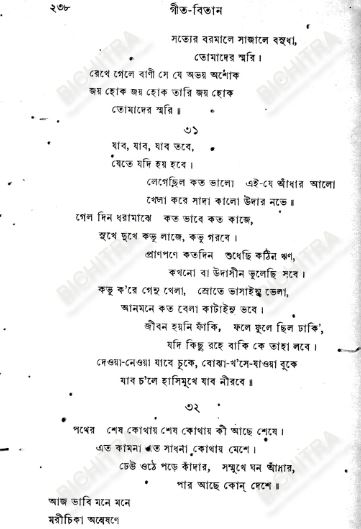 ২৩৮ গীত-বিতান
সত্যের বরমালে সাজালে বসুধা,
তোমাদের স্মরি।
রেখে গেলে বাণী সে যে অভয় অশোক
জয় হোক জয় হোক তারি জয় হোক
তোমাদের স্মরি॥
৩১
যাব, যাব, যাব তবে,
যেতে যদি হয় হবে।
লেগেছিল কত ভালো এই-যে আঁধার আলো
খেলা করে সাদা কালো উদার নভে।
গেল দিন ধরামাঝে কত ভাবে কত কাজে,
সুখে দুখে কভু লাজে, কভু গরবে।
প্রাণপণে কতদিন শুধেছি কঠিন ঋণ,
কখনো বা উদাসীন ভুলেছি সবে।
কভু ক'রে গেনু খেলা, স্রোতে ভাসাইনু ভেলা,
আনমনে কত বেলা কাটাইনু ভবে।
জীবন হয়নি ফাঁকি, ফলে ফুলে ছিল ঢাকি',
যদি কিছু রহে বাকি কে তাহা লবে।
দেওয়া-নেওয়া যাবে চুকে, বোঝা-খ'সে-যাওয়া বুকে
যাব চ'লে হাসিমুখে যাব নীরবে॥
৩২
পথের শেষ কোথায় শেষ কোথায় কী আছে শেষে।
এত কামনা এত সাধনা কোথায় মেশে।
ঢেউ ওঠে পড়ে কাঁদার, সম্মুখে ঘন আঁধার,
পার আছে কোন্ দেশে॥
আজ ভাবি মনে মনে
মরীচিকা অন্বেষণে
BICHITRA